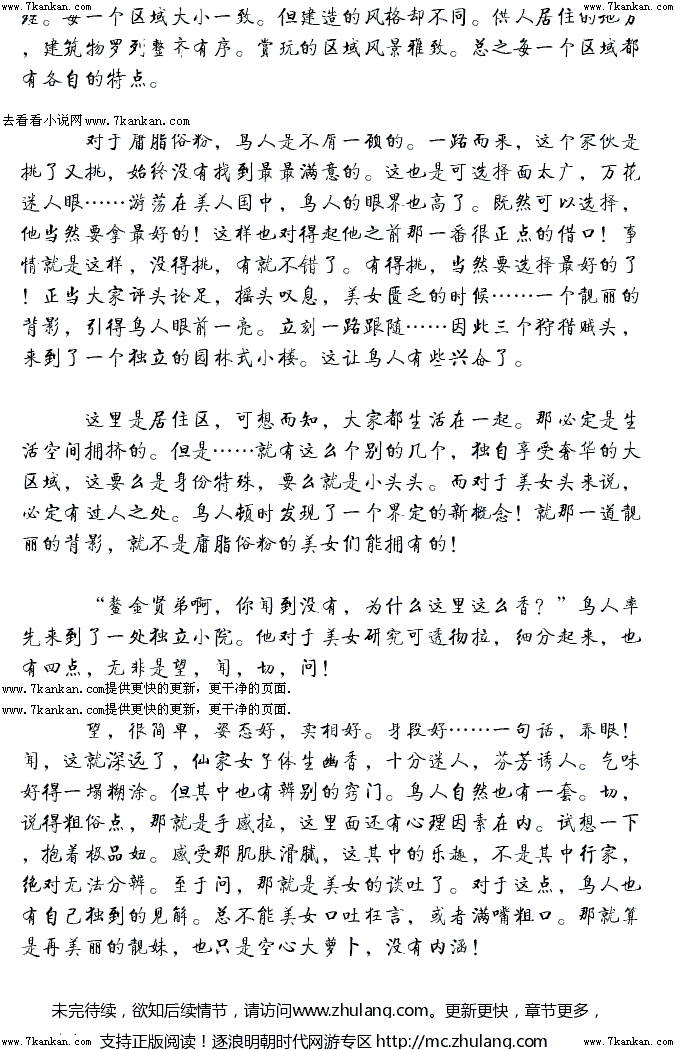 www.7kankan.com www.7kankan.com
理。每一个区域大小一致。但建造的风格却不同。供人居住的地方
，建筑物罗列整齐有序。赏玩的区域风景雅致。总之每一个区域都
有各自的特点。
去看看小说网www.7kankan.com
对于庸脂俗粉，鸟人是不屑一顾的。一路而来，这个家伙是
挑了又挑，始终没有找到最最满意的。这也是可选择面太广，万花
迷人眼……游荡在美人国中，鸟人的眼界也高了。既然可以选择，
他当然要拿最好的！这样也对得起他之前那一番很正点的借口！事
情就是这样，没得挑，有就不错了。有得挑，当然要选择最好的了
！正当大家评头论足，摇头叹息，美女匮乏的时候……一个靓丽的
背影，引得鸟人眼前一亮。立刻一路跟随……因此三个狩猎贼头，
来到了一个独立的园林式小楼。这让鸟人有些兴奋了。
这里是居住区，可想而知，大家都生活在一起。那必定是生
活空间拥挤的。但是……就有这么个别的几个，独自享受奢华的大
区域，这要么是身份特殊，要么就是小头头。而对于美女头来说，
必定有过人之处。鸟人顿时发现了一个界定的新概念！就那一道靓
丽的背影，就不是庸脂俗粉的美女们能拥有的！
“鳌金贤弟啊，你闻到没有，为什么这里这么香？”鸟人率
先来到了一处独立小院。他对于美女研究可透彻拉，细分起来，也
有四点，无非是望，闻，切，问！
www.7kankan.com提供更快的更新，更干净的页面.
www.7kankan.com提供更快的更新，更干净的页面.
望，很简单，姿态好，卖相好。身段好……一句话，养眼！
闻，这就深远了，仙家女子体生幽香，十分迷人，芬芳诱人。气味
好得一塌糊涂。但其中也有辨别的窍门。鸟人自然也有一套。切，
说得粗俗点，那就是手感拉，这里面还有心理因素在内。试想一下
，抱着极品妞。感受那肌肤滑腻，这其中的乐趣，不是其中行家，
绝对无法分辨。至于问，那就是美女的谈吐了。对于这点，鸟人也
有自己独到的见解。总不能美女口吐狂言，或者满嘴粗口。那就算
是再美丽的靓妹，也只是空心大萝卜，没有内涵！
未完待续，欲知后续情节，请访问www.zhulang.com。更新更快，章节更多，
www.7kankan.com 支持正版阅读！逐浪明朝时代网游专区 http://mc.zhulang.com www.7kankan.com